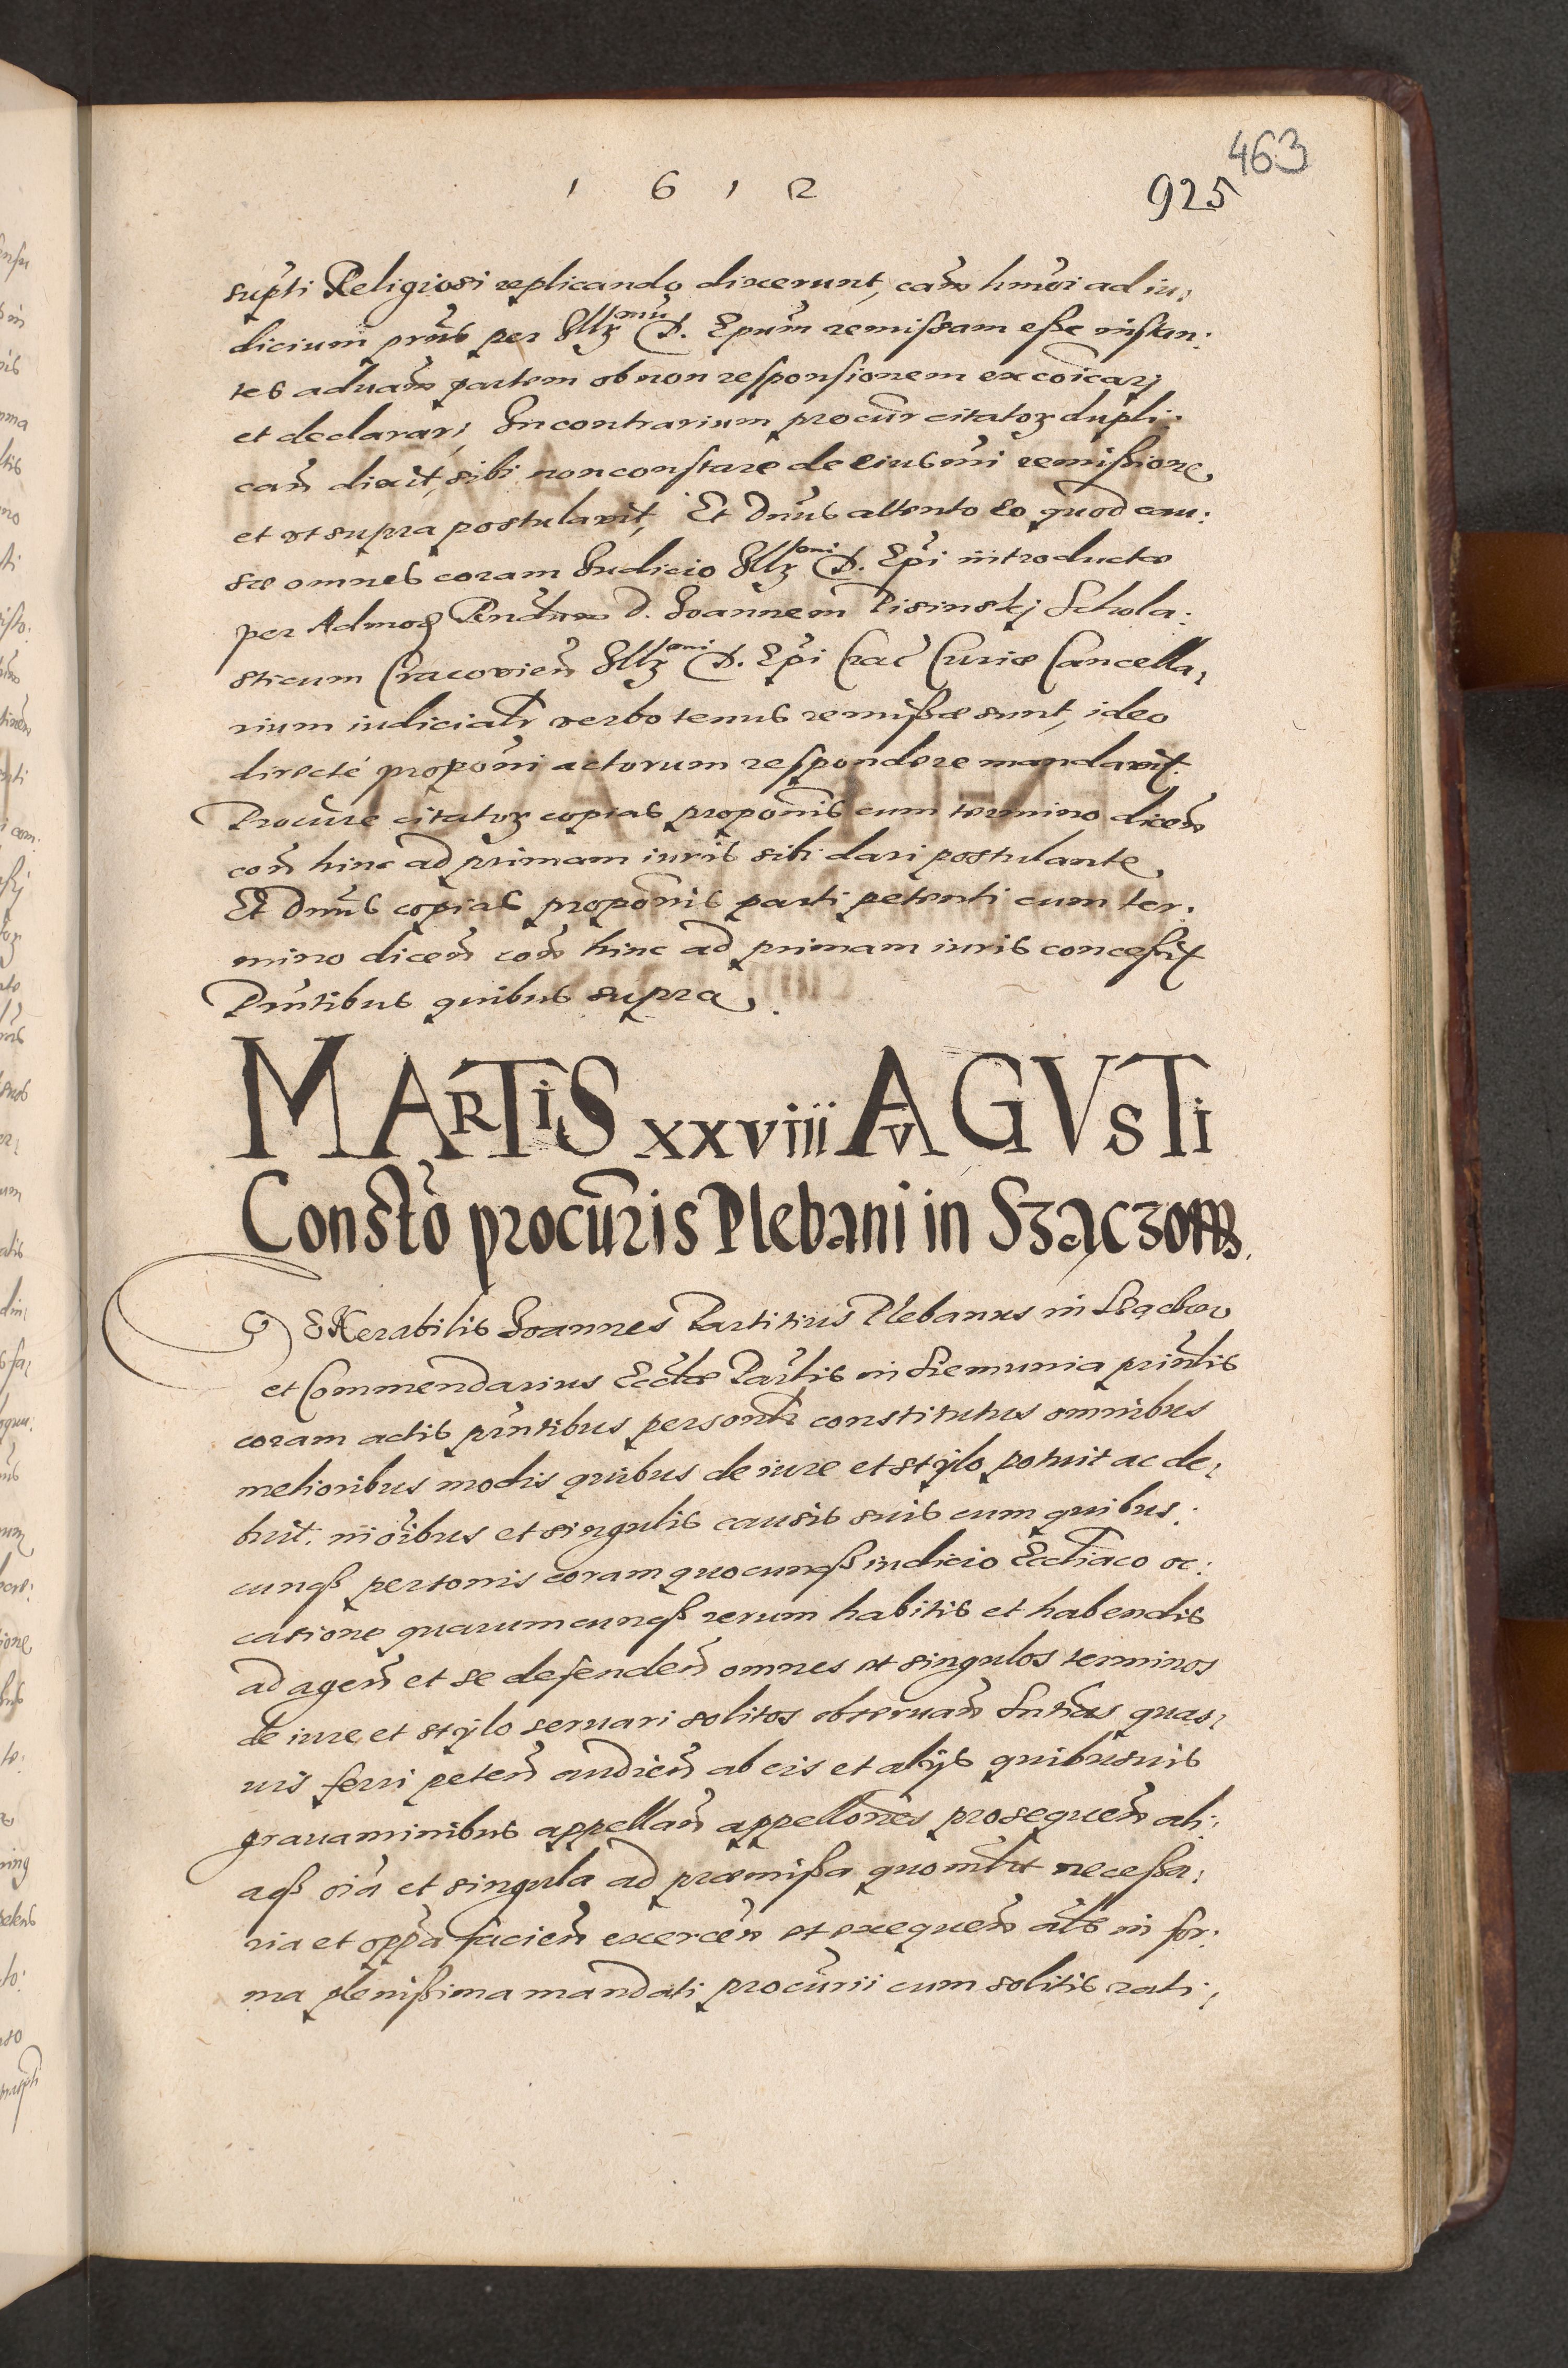 463
1 6 1 2
925
supti Religiosi replicando dixerunt, cam hmoi ad iu,
dicium prns per Illr mu D. Epum remissam esse instan:
tes aduam partem ob non responsionem excoicarj
et declararj, In contrarium procur citator dupli:
can dixit, sibi non constare de eiusmi remissione,
et ut supra postulavit, Et Dnus attento eo quod cau:
sæ omnes coram Iudicio Illr mi D. Epi introductæ
per Admod Rndum D. Joannem Pisinskj Schola:
sticum Cracovien Illr mi D. Epi Crac Curiæ Cancella,
rium iudicialr verbotenus remissæ sunt, ideo
directé proponi actorum respondere mandavit.
Procure citator copias proponis cum termino dicen
con hinc ad primam iuris sibi dari postulante,
Et Dnus copias proponis parti petenti cum ter,
mino dicen con hinc ad primam iuris concessit
Prntibus quibus supra.
MARTIS xxviii AVGVSTI
Constto procuris Plebani in Szączow.
VENerabilis Joannes Partitius Plebanus in
et Commendarius Ecclæ Parlis in Siemunia prinlis
coram actis prntibus personlr constitutus omnibus
melioribus modis quibus de iure et stylo potuit ac de,
buit. in oibus et singulis causis suis cum quibus:
cunqß personis coram quocunqß iudicio Eccliaco oc:
casione quarumcunqß rerum habitis et habendis
ad agen et se defenden omnes et singulos terminos
de iure et stylo servari solitos observan Sntias quas,
uis ferri peten audien ab eis et alijs quibusuis
gravaminibus appellan appellones prosequen ali,
aqß oia et singula ad præmissa quomlt necessa,
ria et oppa facien exercen et exequen als in for,
ma plenissima mandati procurii cum solitis rati,